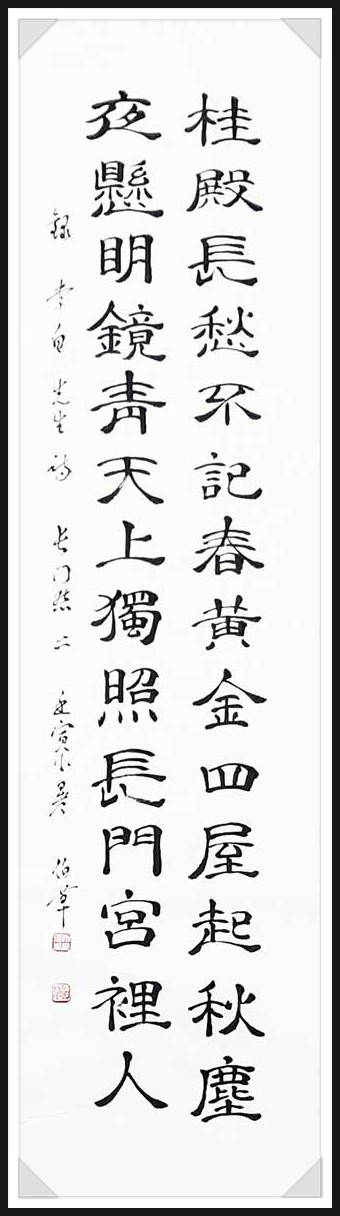 桂殿長愁不記春黄金四屋起秋塵
夜懸明鏡青天上獨照長門宮裡人
錄 李白先生詩 長門怨二 壬寅 伯華